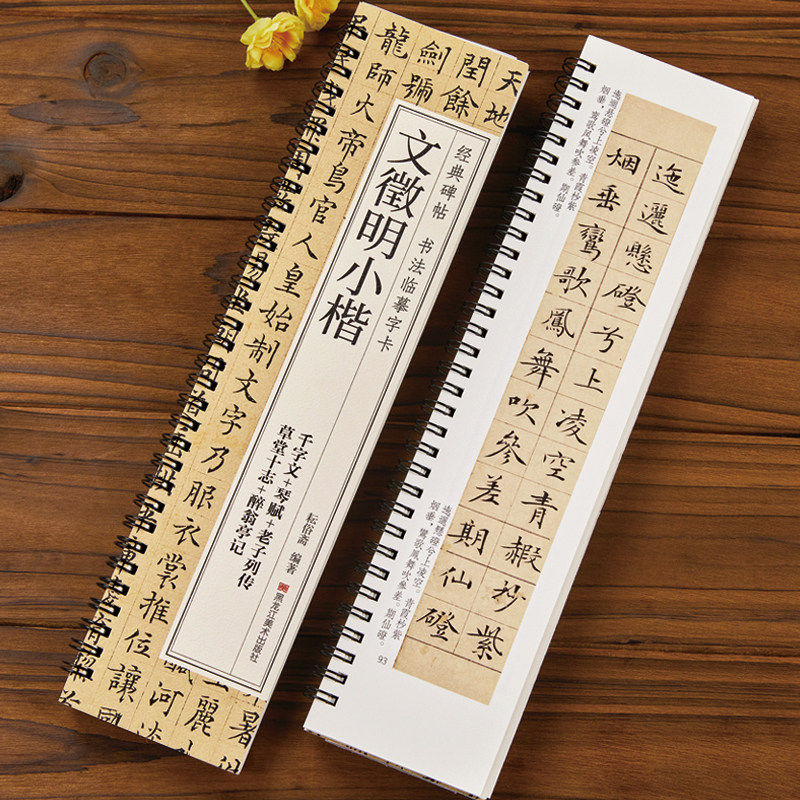 天地
閏餘
劍號
龍師火帝鳥官人皇始制文字乃服衣裳推位讓國
经典碑帖 书法临摹字卡
文徵明小楷
千字文+琴赋+老子列传
草堂十志+醉翁亭记
耘俗斋 编著
黑龙江美术出版社
迤逦悬磴兮上凌空。青霞杪紫
烟垂，鸾歌凤舞吹参差。期仙磴。
迤邐懸磴兮上凌空青赮杪紫
烟垂鸞歌鳳舞吹參差期仙磴
迤逦悬磴兮上凌空。青霞杪紫
烟垂，鸾歌凤舞吹参差。期仙磴。
93